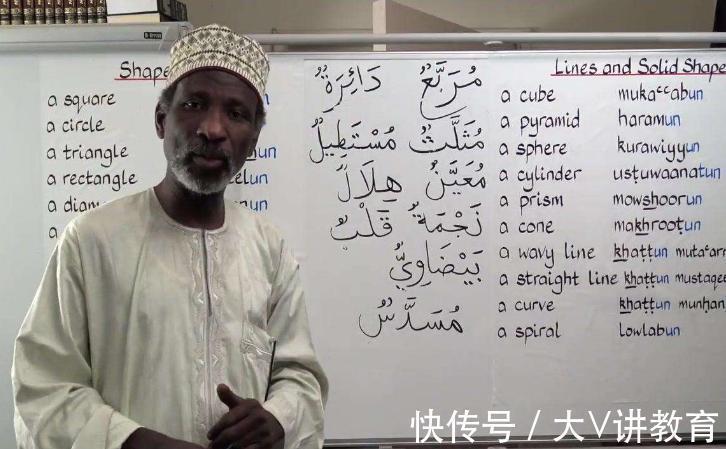 Shape
a square
a circle
a triangle
a rectangle
a
un
un
مُرَبَّعٌ دَائِرَةٌ
مُثَلَّثٌ مُسْتَطِيلٌ
مُعَيَّنٌ هِلَالٌ
نَجْمَةٌ قَلْبٌ
بَيْضَاوِيٌّ
مُسَدَّسٌ
Lines and Solid Shape
a cube mukaᶜᶜabun
a pyramid haramun
a sphere kurawiyyun
a cylinder usṭuwaanatun
a prism mowshoorun
a cone makhrooṭun
a wavy line khaṭṭun
a straight line khaṭṭun
a curve khaṭṭun
a spiral lowlabun
快传号 / 大V讲教育